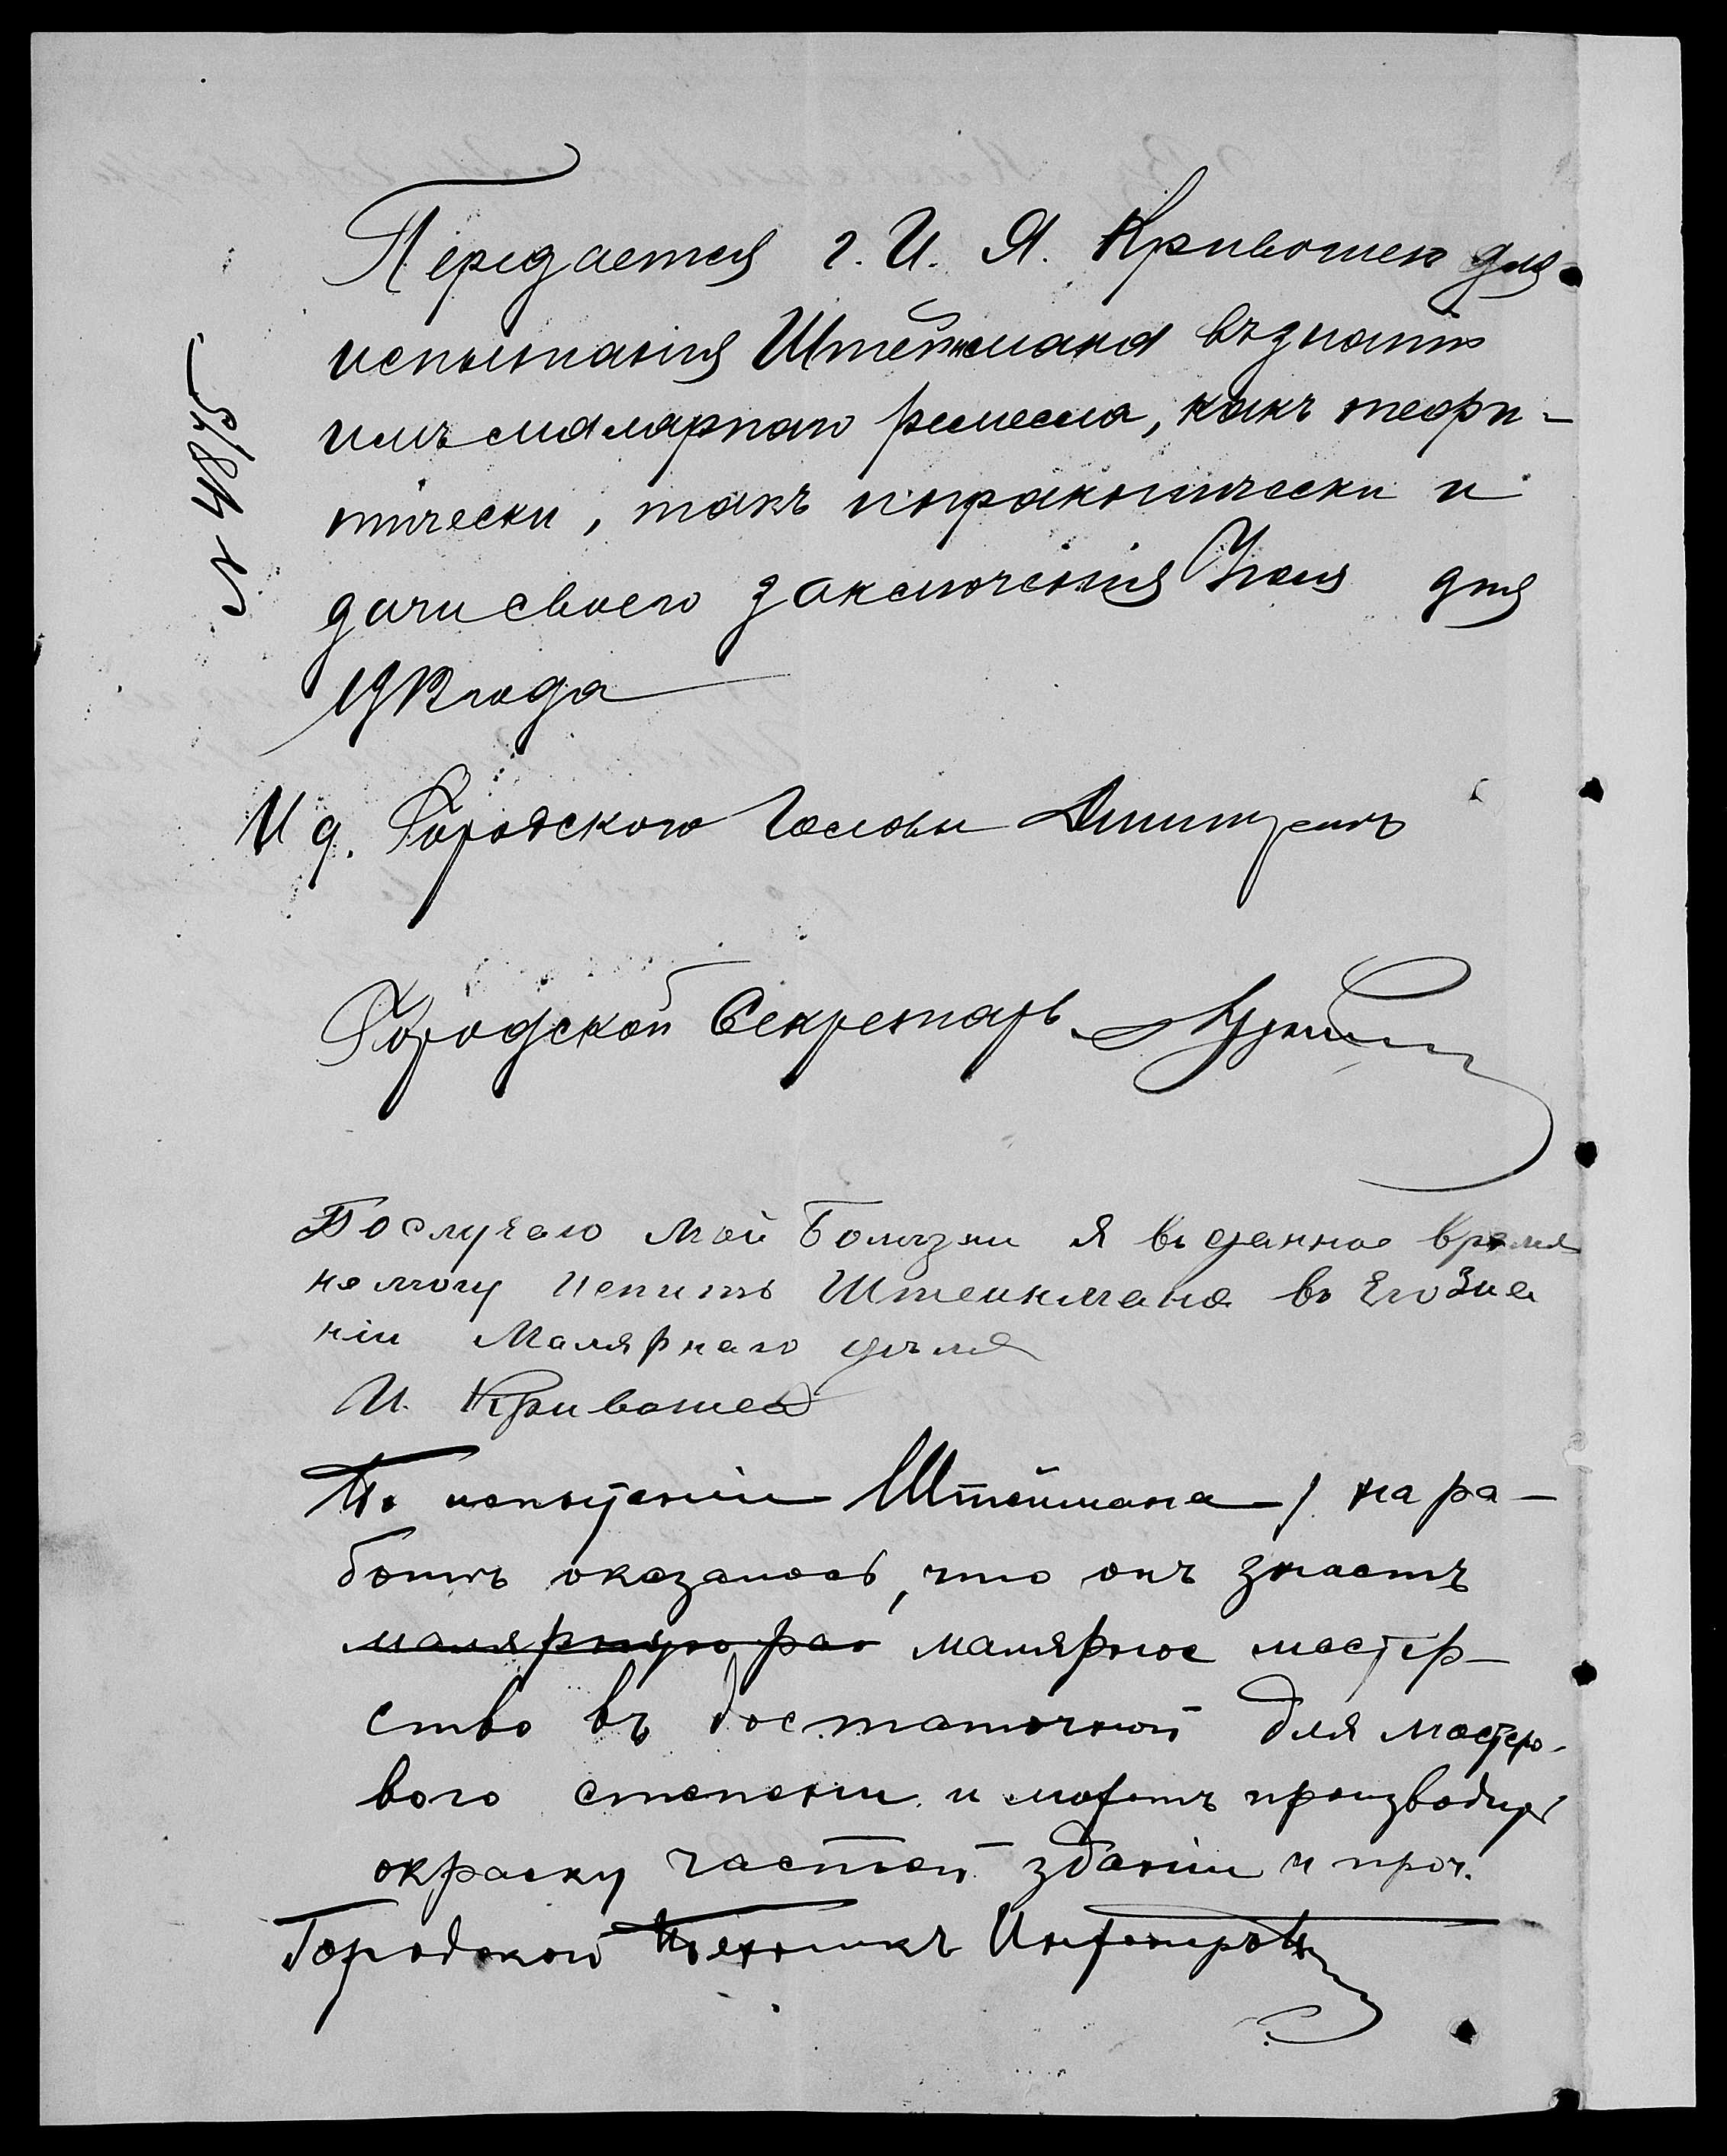 № 4875
Передается г. И. Я. Кривошеи для
испытанія Штейнмана въ знаніи
имъ малярнаго ремесла, какъ теори-
тически, такъ и практически и
дачи своего заключенія Іюля дня
1912 года
И д. Городского Головы
Городской Секретарь
По случаю моей болѣзни я въ данное время
не могу испитъ Штеинмана въ Его Зна
ніи Малярнаго дѣла
И. Кривошея
По испытаніи Штейнмана / на ра-
ботѣ оказалось, что онъ знаетъ
малярную раб малярное мастер-
ство въ достаточной для мастеро-
вого степени и можетъ производить
окраску частей зданіи и проч.
Городской Техникъ Инженеръ